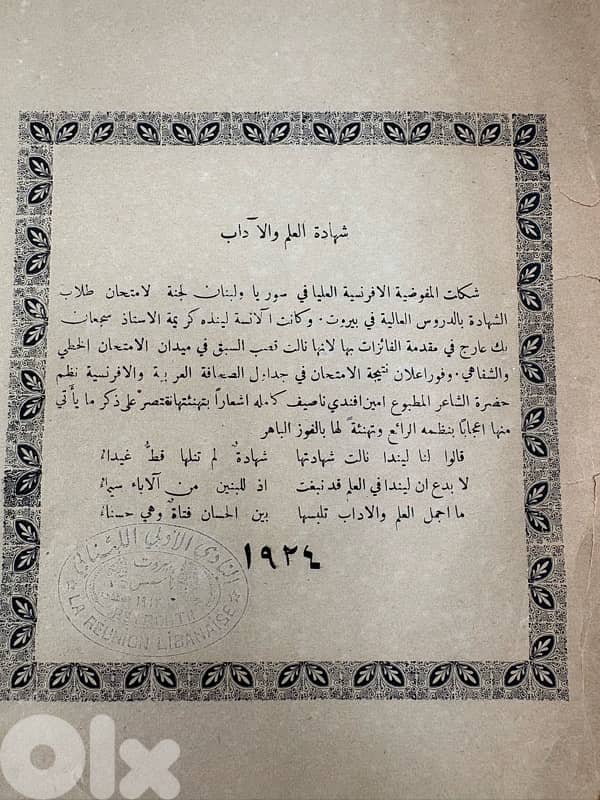 شهادة العلم والآداب
شكلت المفوضية الافرنسية العليا في سوريا ولبنان لجنة لامتحان طلاب
الشهادة بالدروس العالية في بيروت . وكانت الآنسة لينده كريمة الاستاذ سجعان
بك عارج في مقدمة الفائزات بها لانها نالت قصب السبق في ميدان الامتحان الخطي
والشفاهي . وفور اعلان نتيجة الامتحان في جداول الصحافة العربية والافرنسية نظم
حضرة الشاعر المطبوع امين افندي ناصيف كامله اشعاراً بتهنئتها نقتصر على ذكر ما يأتي
منها اعجاباً بنظمه الرائع وتهنئةً لها بالفوز الباهر
قالوا لنا ليندا نالت شهادتها شهادةٌ لم تنلها قطُّ غيداء
لا بدع ان ليندا في العلم قد نبغت اذ للبنين من آلاباء سيماء
ما اجمل العلم والاداب تلبسها بين الحسان فتاةٌ وهي حسناء
١٩٢٤
النادي الأدبي اللبناني
بيروت
١٩١٢
BEYROUTH
LA REUNION LIBANAISE
olx